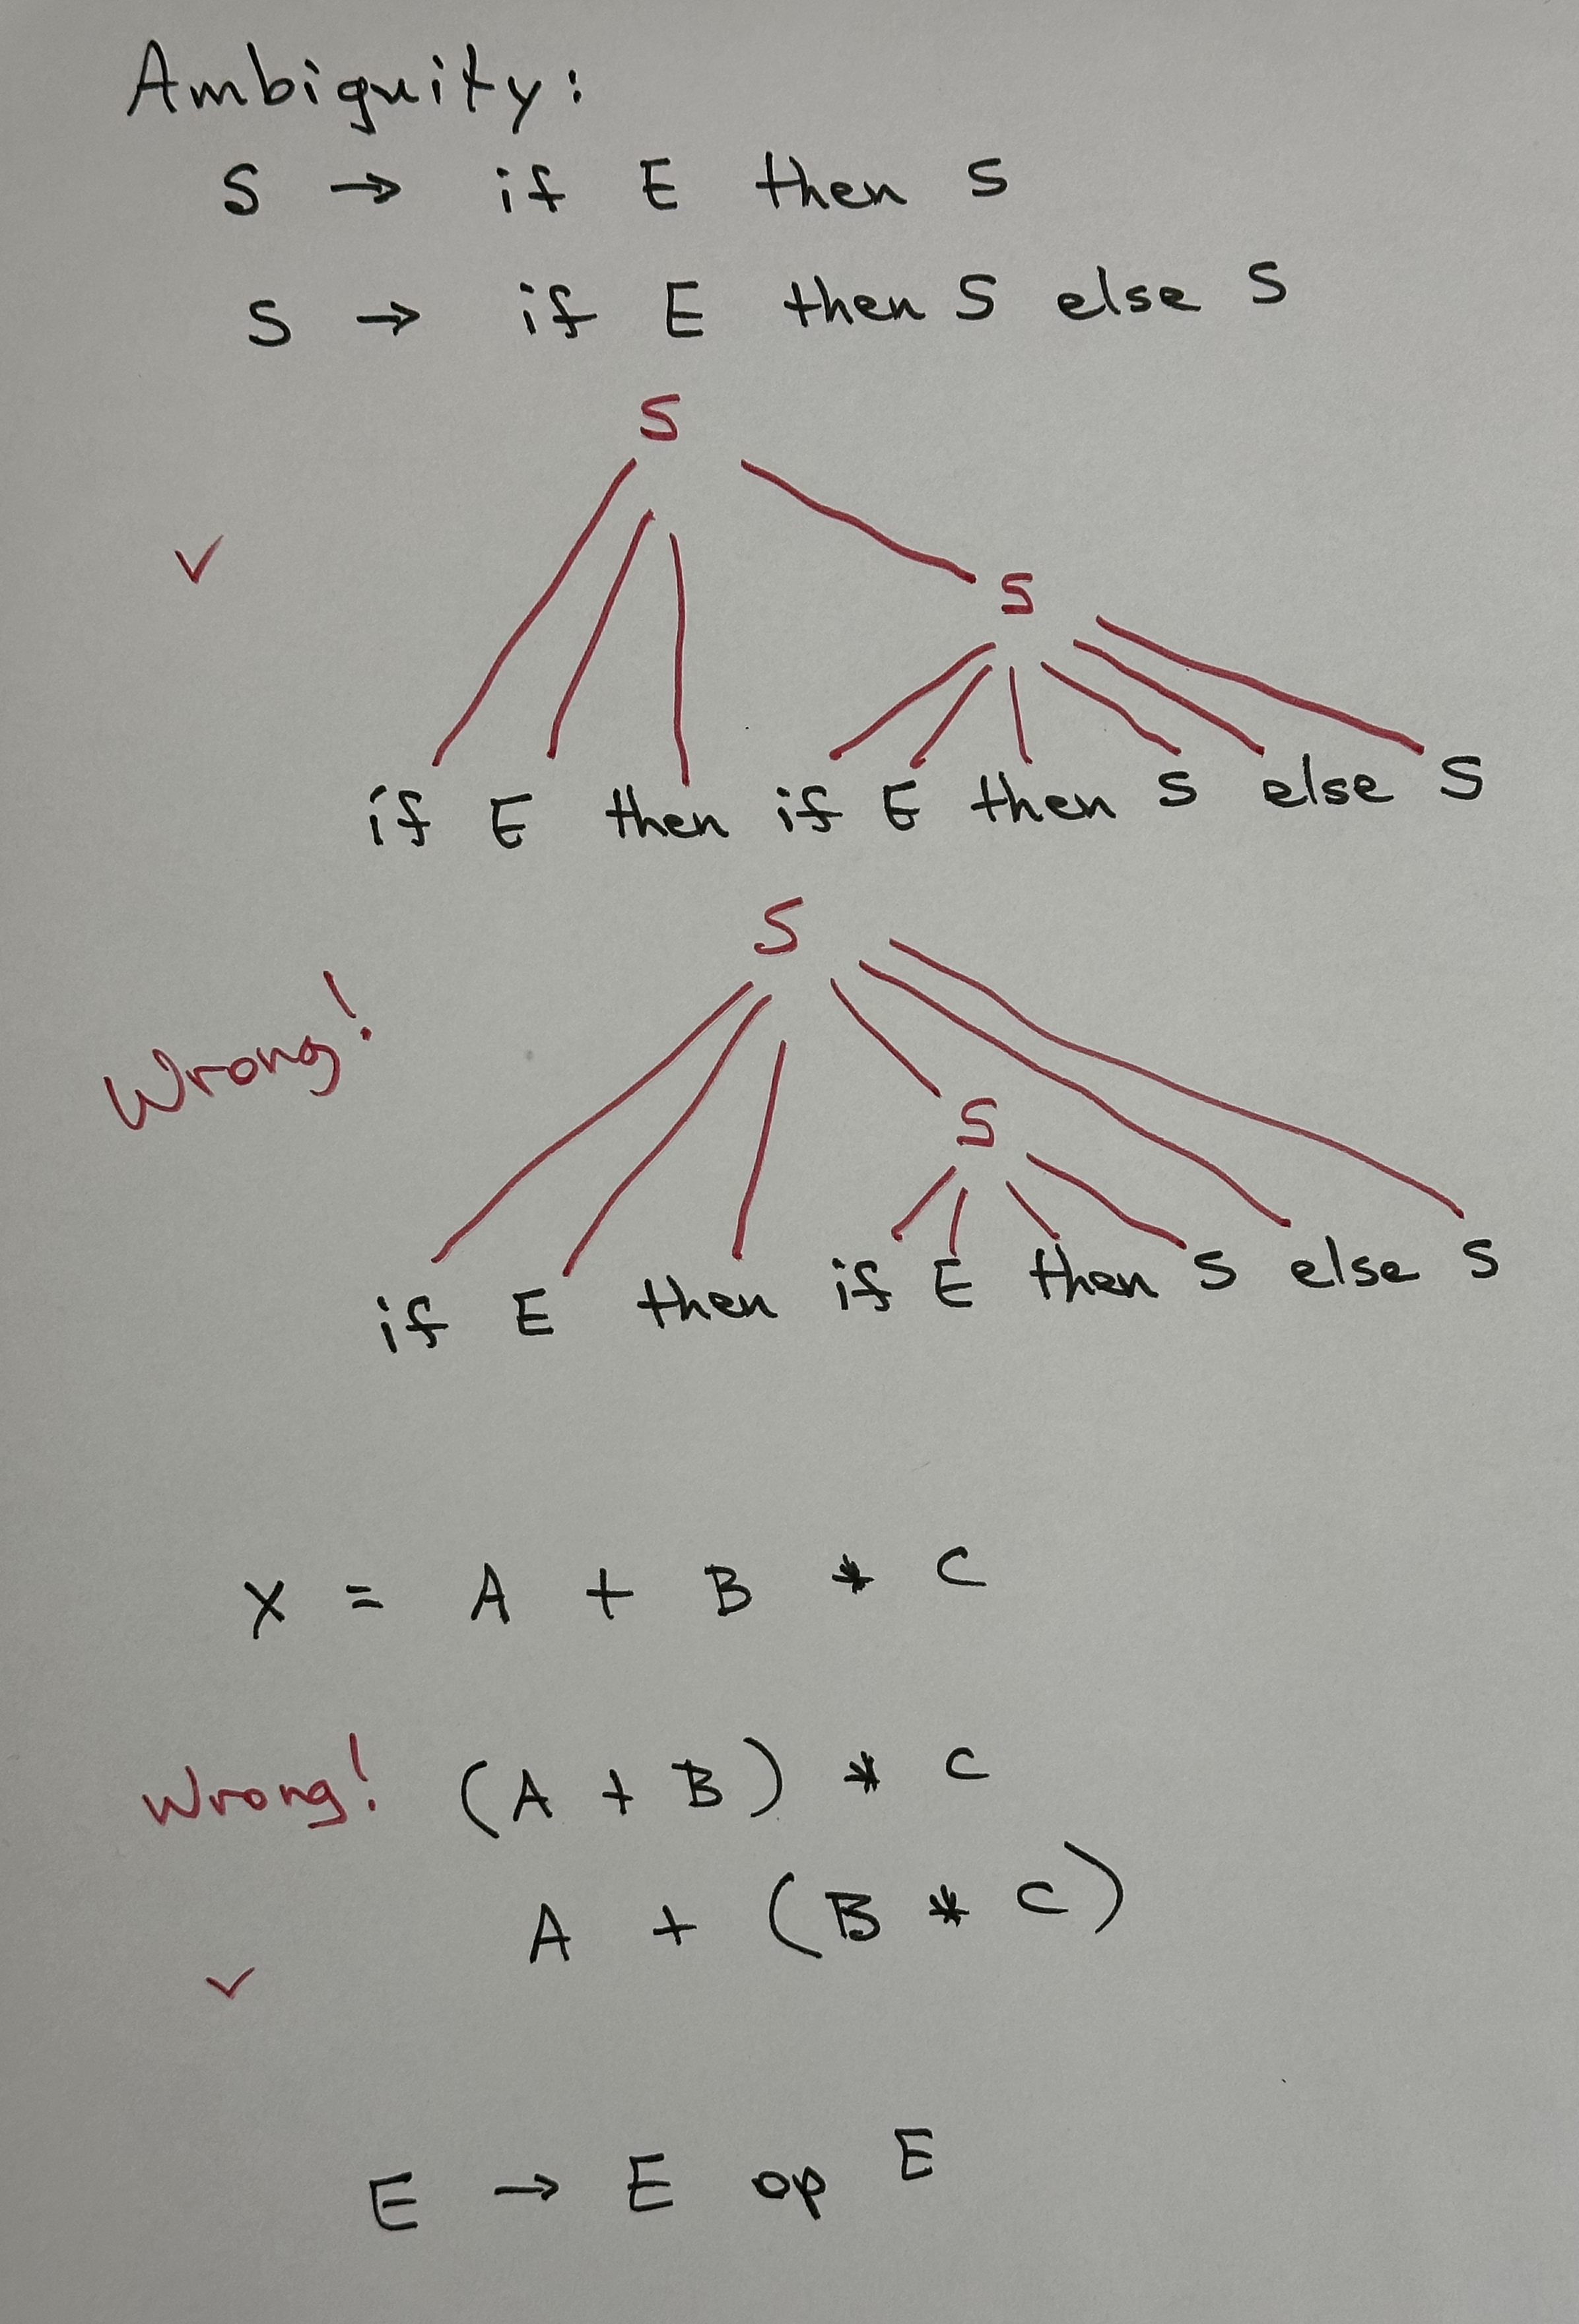 Ambiguity:
S → if E then S
S → if E then S else S
S
✓
S
if E then if E then S else S
S
Wrong!
S
if E then if E then S else S
X = A + B * C
Wrong! (A + B) * C
A + (B * C)
✓
E → E op E